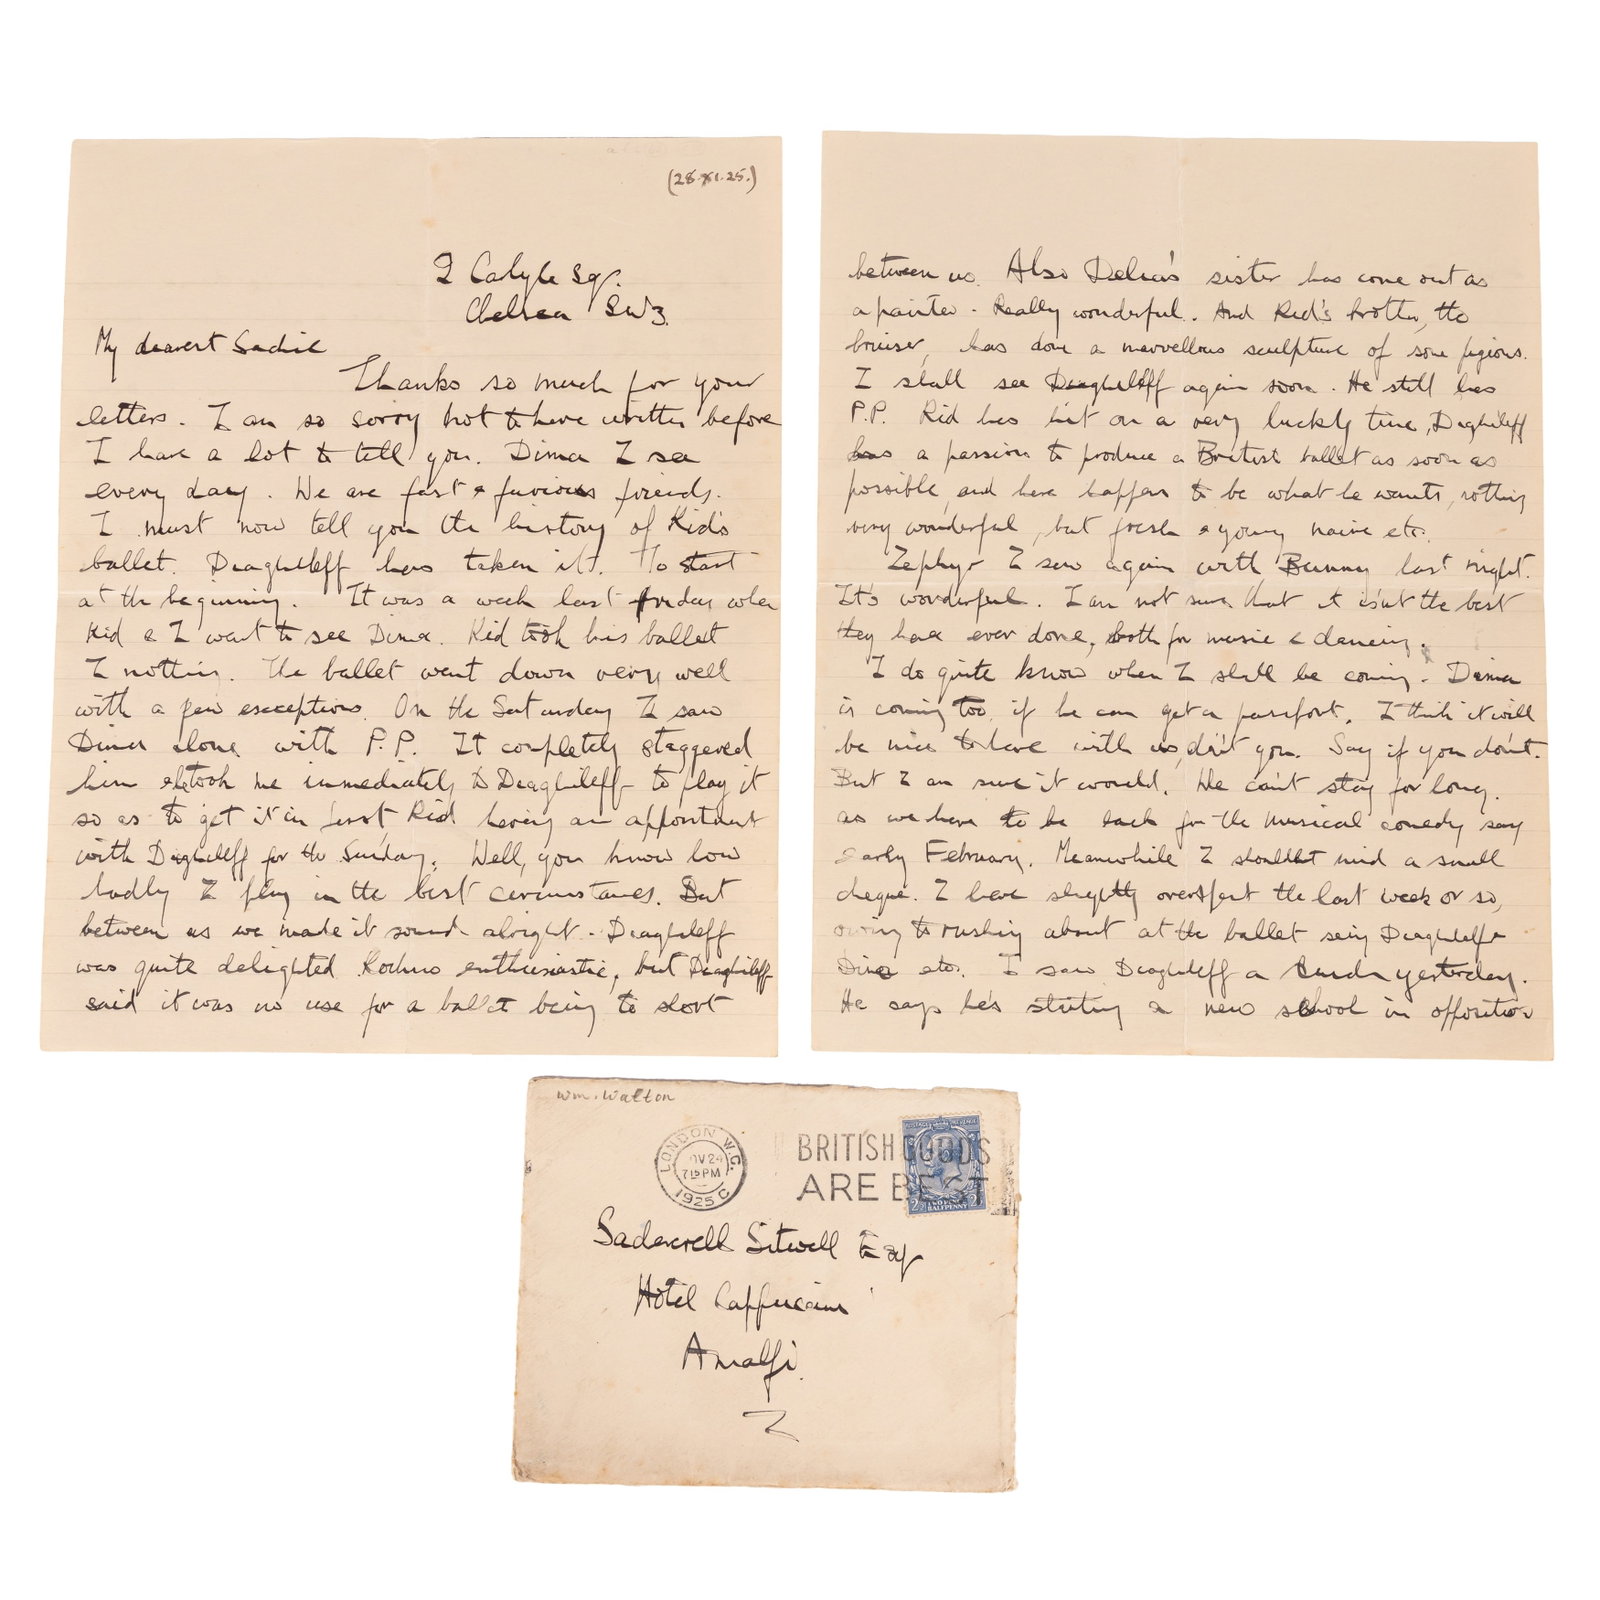 (28.XI.25.)
2 Carlyle Sq.
Chelsea SW3.
My dearest Sachie
Thanks so much for your
letters. I am so sorry not to have written before
I have a lot to tell you. Dima I see
every day. We are fast & furious friends.
I must now tell you the history of Kid's
ballet. Diaghileff has taken it. To start
at the beginning. It was a week last Friday when
Kid & I went to see Dima. Kid took his ballet
I nothing. The ballet went down very well
with a few exceptions. On the Saturday I saw
Dima alone with P.P. It completely staggered
him & took me immediately to Diaghileff to play it
so as to get it in first Kid having an appointment
with Diaghileff for the Sunday. Well, you know how
badly I play in the best circumstances. But
between us we made it sound alright. Diaghileff
was quite delighted Kochno enthusiastic, but Diaghileff
said it was no use for a ballet being to short
between us. Also Delia's sister has come out as
a painter. Really wonderful. And Kid's brother, the
bruiser, has done a marvellous sculpture of some pigeons.
I shall see Diaghileff again soon. He still has
P.P. Kid has hit on a very lucky time, Diaghileff
has a passion to produce a British ballet as soon as
possible, and here happens to be what he wants, nothing
very wonderful, but fresh & young naive etc.
Zephyr I saw again with Bunny last night.
It's wonderful. I am not sure that it isn't the best
they have ever done, both for music & dancing.
I do quite know when I shall be coming. Dima
is coming too, if he can get a passport. I think it will
be nice to have with us, don't you. Say if you don't.
But I am sure it would. We can't stay for long.
as we have to be back for the musical comedy say
early February. Meanwhile I shouldn't mind a small
cheque. I have slightly overspent the last week or so,
owing to rushing about at the ballet seeing Diaghileff
Dima etc. I saw Diaghileff a lunch yesterday.
He says he's starting a new school in opposition
Wm. Walton
LONDON W.C.
NOV 24
715 PM
1925 C
BRITISH GOODS
ARE BEST
POSTAGE REVENUE
2½ TWO PENCE 2½
HALFPENNY
Sacheverell Sitwell Esq
Hotel Cappucini
Amalfi.